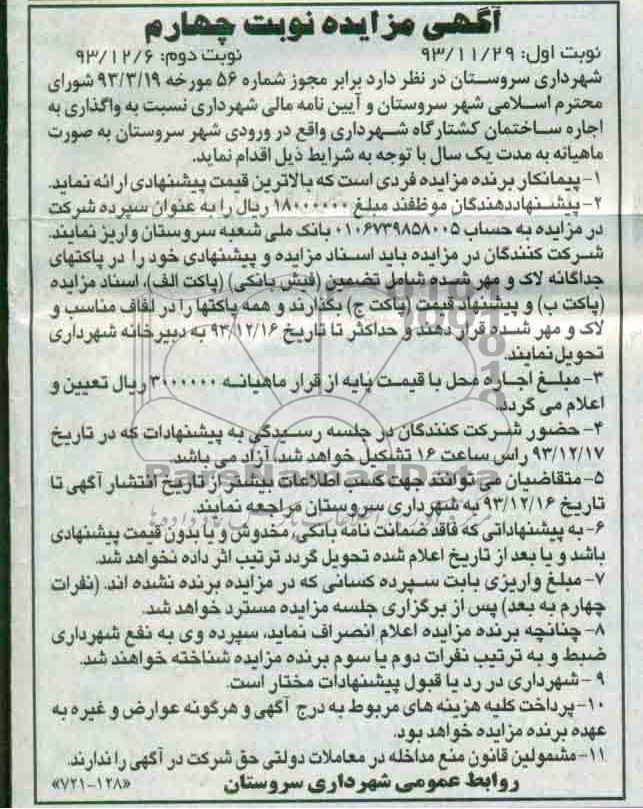 آگهی مزایده نوبت چهارم
نوبت اول: ۹۳/۱۱/۲۹ نوبت دوم: ۹۳/۱۲/۶
شهرداری سروستان در نظر دارد برابر مجوز شماره ۵۶ مورخه ۹۳/۳/۱۹ شورای
محترم اسلامی شهر سروستان و آیین نامه مالی شهرداری نسبت به واگذاری به
اجاره ساختمان کشتارگاه شهرداری واقع در ورودی شهر سروستان به صورت
ماهیانه به مدت یک سال با توجه به شرایط ذیل اقدام نماید.
۱-پیمانکار برنده مزایده فردی است که بالاترین قیمت پیشنهادی ارائه نماید.
۲- پیشنهاددهندگان موظفند مبلغ ۱۸۰۰۰۰۰۰ ریال را به عنوان سپرده شرکت
در مزایده به حساب ۰۱۰۶۷۳۹۸۵۸۰۰۵ بانک ملی شعبه سروستان واریز نمایند.
شرکت کنندگان در مزایده باید اسناد مزایده و پیشنهادی خود را در پاکتهای
جداگانه لاک و مهر شده شامل تضمین (فیش بانکی) (پاکت الف)، اسناد مزایده
(پاکت ب) و پیشنهاد قیمت (پاکت ج) بگذارند و همه پاکتها را در لفاف مناسب و
لاک و مهر شده قرار دهند و حداکثر تا تاریخ ۹۳/۱۲/۱۶ به دبیرخانه شهرداری
تحویل نمایند.
۳- مبلغ اجاره محل با قیمت پایه از قرار ماهیانه ۳۰۰۰۰۰۰ ریال تعیین و
اعلام می گردد.
۴- حضور شرکت کنندگان در جلسه رسیدگی به پیشنهادات که در تاریخ
۹۳/۱۲/۱۷ راس ساعت ۱۶ تشکیل خواهد شد، آزاد می باشد.
۵- متقاضیان می توانند جهت کسب اطلاعات بیشتر از تاریخ انتشار آگهی تا
تاریخ ۹۳/۱۲/۱۶ به شهرداری سروستان مراجعه نمایند.
۶- به پیشنهاداتی که فاقد ضمانت نامه بانکی، مخدوش و یا بدون قیمت پیشنهادی
باشد و یا بعد از تاریخ اعلام شده تحویل گردد ترتیب اثر داده نخواهد شد.
۷- مبلغ واریزی بابت سپرده کسانی که در مزایده برنده نشده اند. (نفرات
چهارم به بعد) پس از برگزاری جلسه مزایده مسترد خواهد شد.
۸- چنانچه برنده مزایده اعلام انصراف نماید، سپرده وی به نفع شهرداری
ضبط و به ترتیب نفرات دوم یا سوم برنده مزایده شناخته خواهند شد.
۹- شهرداری در رد یا قبول پیشنهادات مختار است.
۱۰-پرداخت کلیه هزینه های مربوط به درج آگهی و هرگونه عوارض و غیره به
عهده برنده مزایده خواهد بود.
۱۱-مشمولین قانون منع مداخله در معاملات دولتی حق شرکت در آگهی را ندارند.
روابط عمومی شهرداری سروستان «۷۲۱-۱۲۸»
ParsNamadData